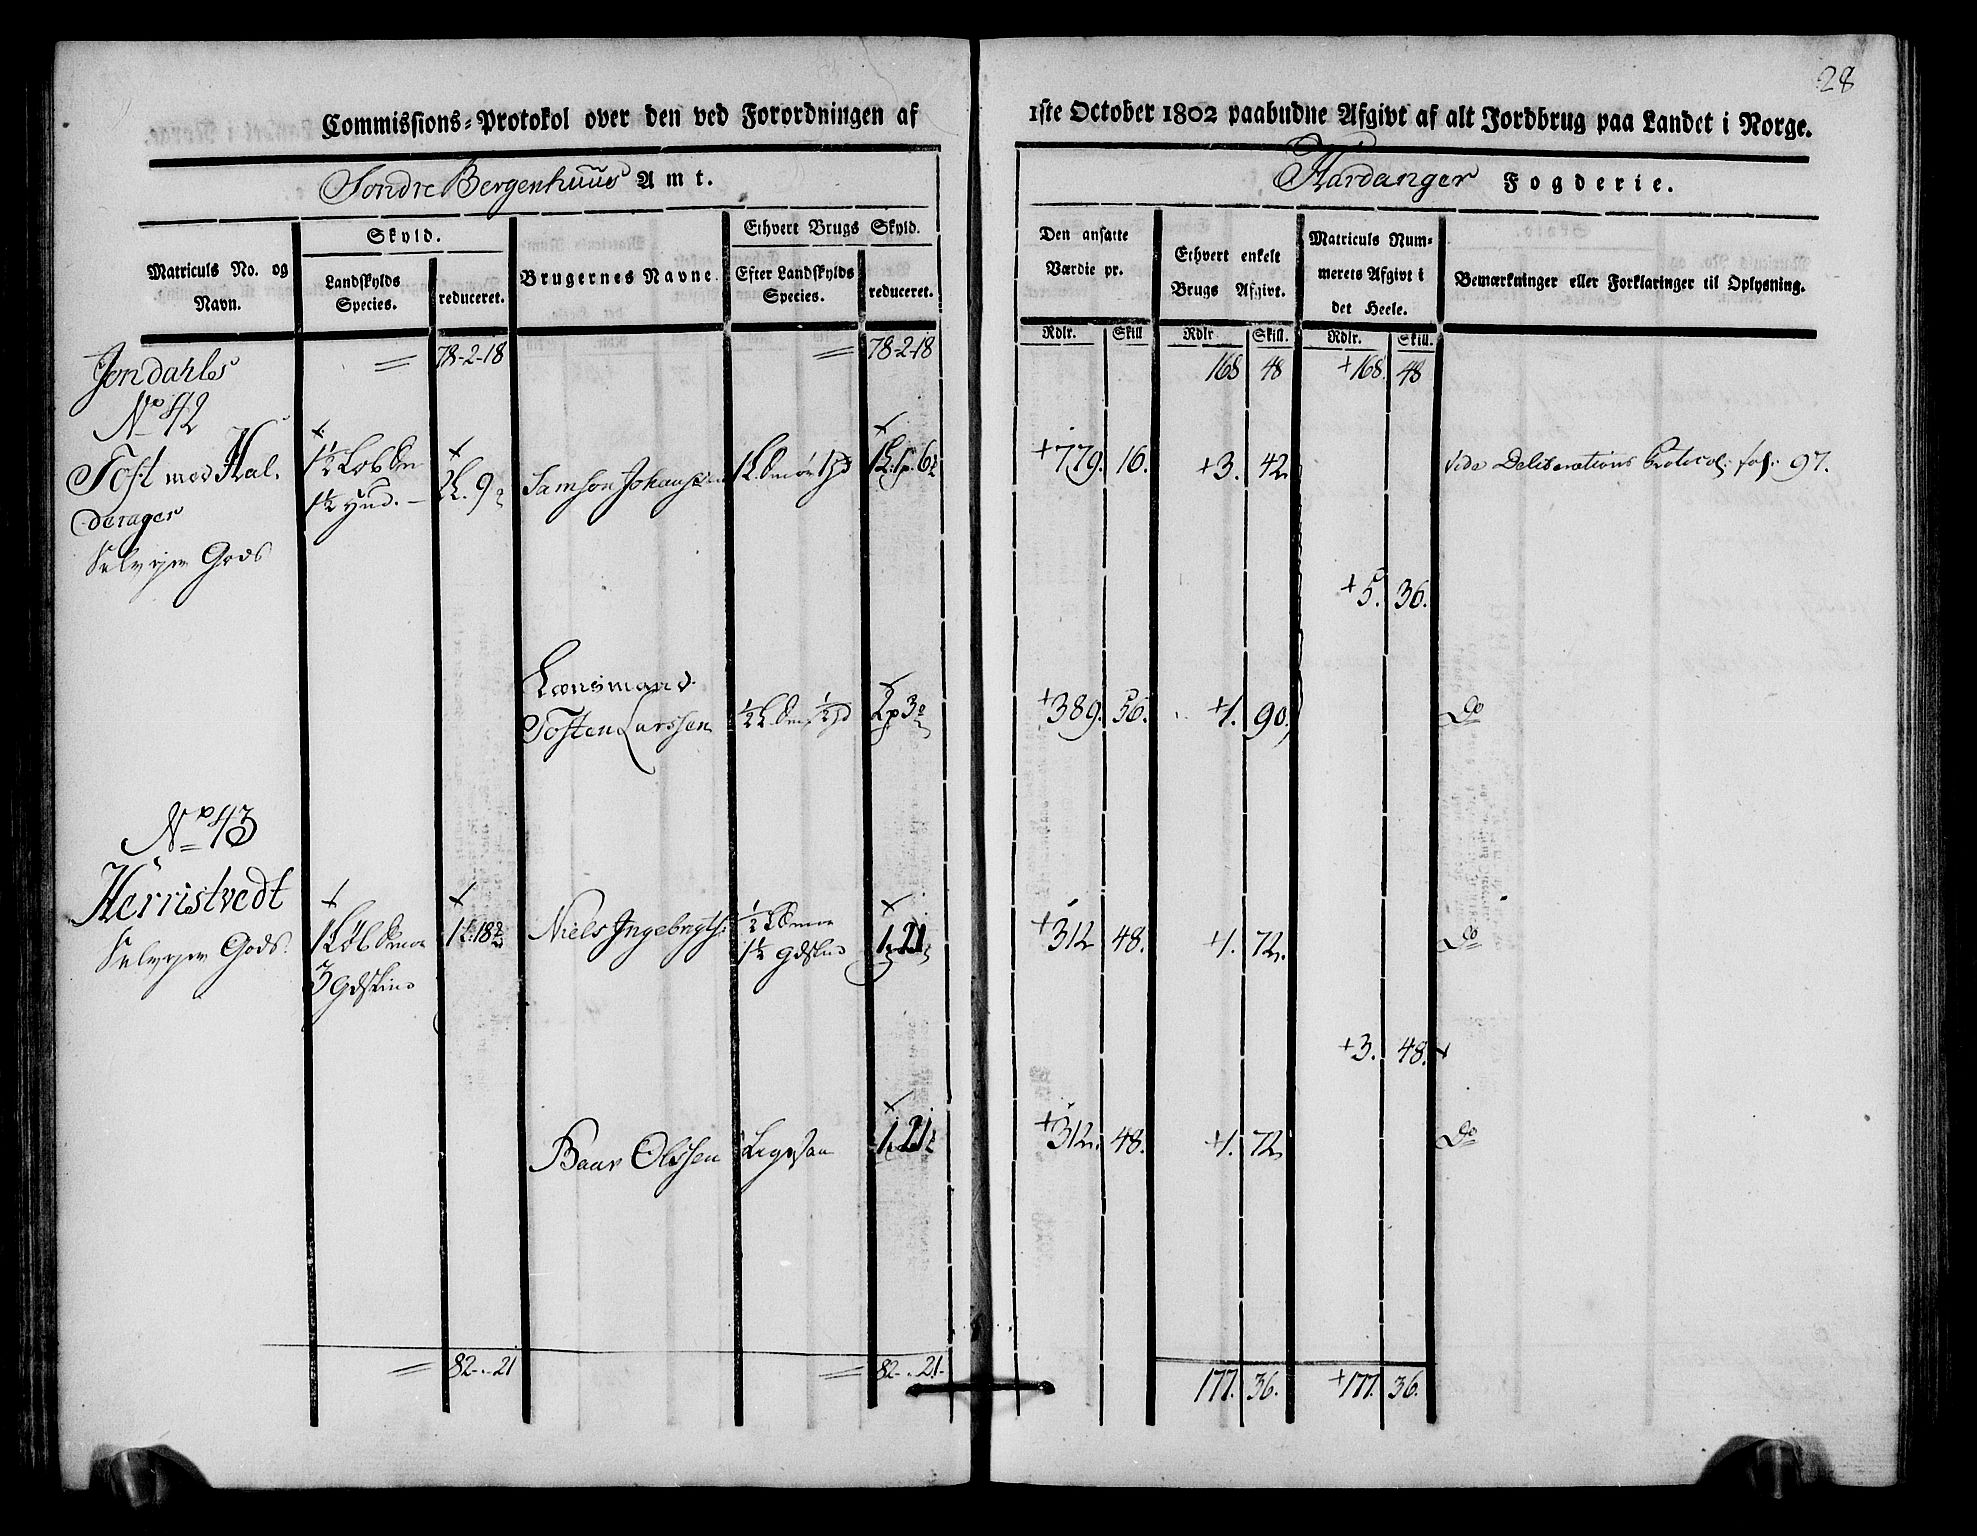 28
Commissions-Protokol over den ved Forordningen af 1ste October 1802 paabudne Afgivt af alt Jordbrug paa Landet i Norge.
Søndre Bergenhuus Amt.
Hardanger Fogderie.
Matriculs No. og Navn.
Skyld.
Landskylds Species.
reduceret.
Brugernes Navne.
Ethvert Brugs Skyld.
Efter Landskylds Species.
reduceret.
Den ansatte Værdie pr.
Rdlr. Skill
Ethvert enkelt Brugs Afgivt.
Rdlr Skill.
Matriculs Nummerets Afgivt i det Heele.
Rdlr. Skill.
Bemærkninger eller Forklaringer til Oplysning.
Jondahls = 78-2-18 = 78-2-18 168 48 +168. 48
No 42
Toft med Halderager
Selvejer Gods
1½ Hud.
Samson Johansen
+779. 16. +3. 42.
Vide Deliberations Protocol: fol: 97.
+5. 36.
Lænsmand
Tosten Larssen
+389. 56. +1. 90.
Do
No 43
Herristvedt
Selvejer Gods.
3 Gdskind
Niels Ingebrigts:
1½ Gdskind
+312 48. +1. 72.
Do
+3. 48.
Baar Olssen
Ligesaa
+312. 48. +1. 72
Do
= 82-"-21 = 82-"-21- 177. 36. +177. 36.